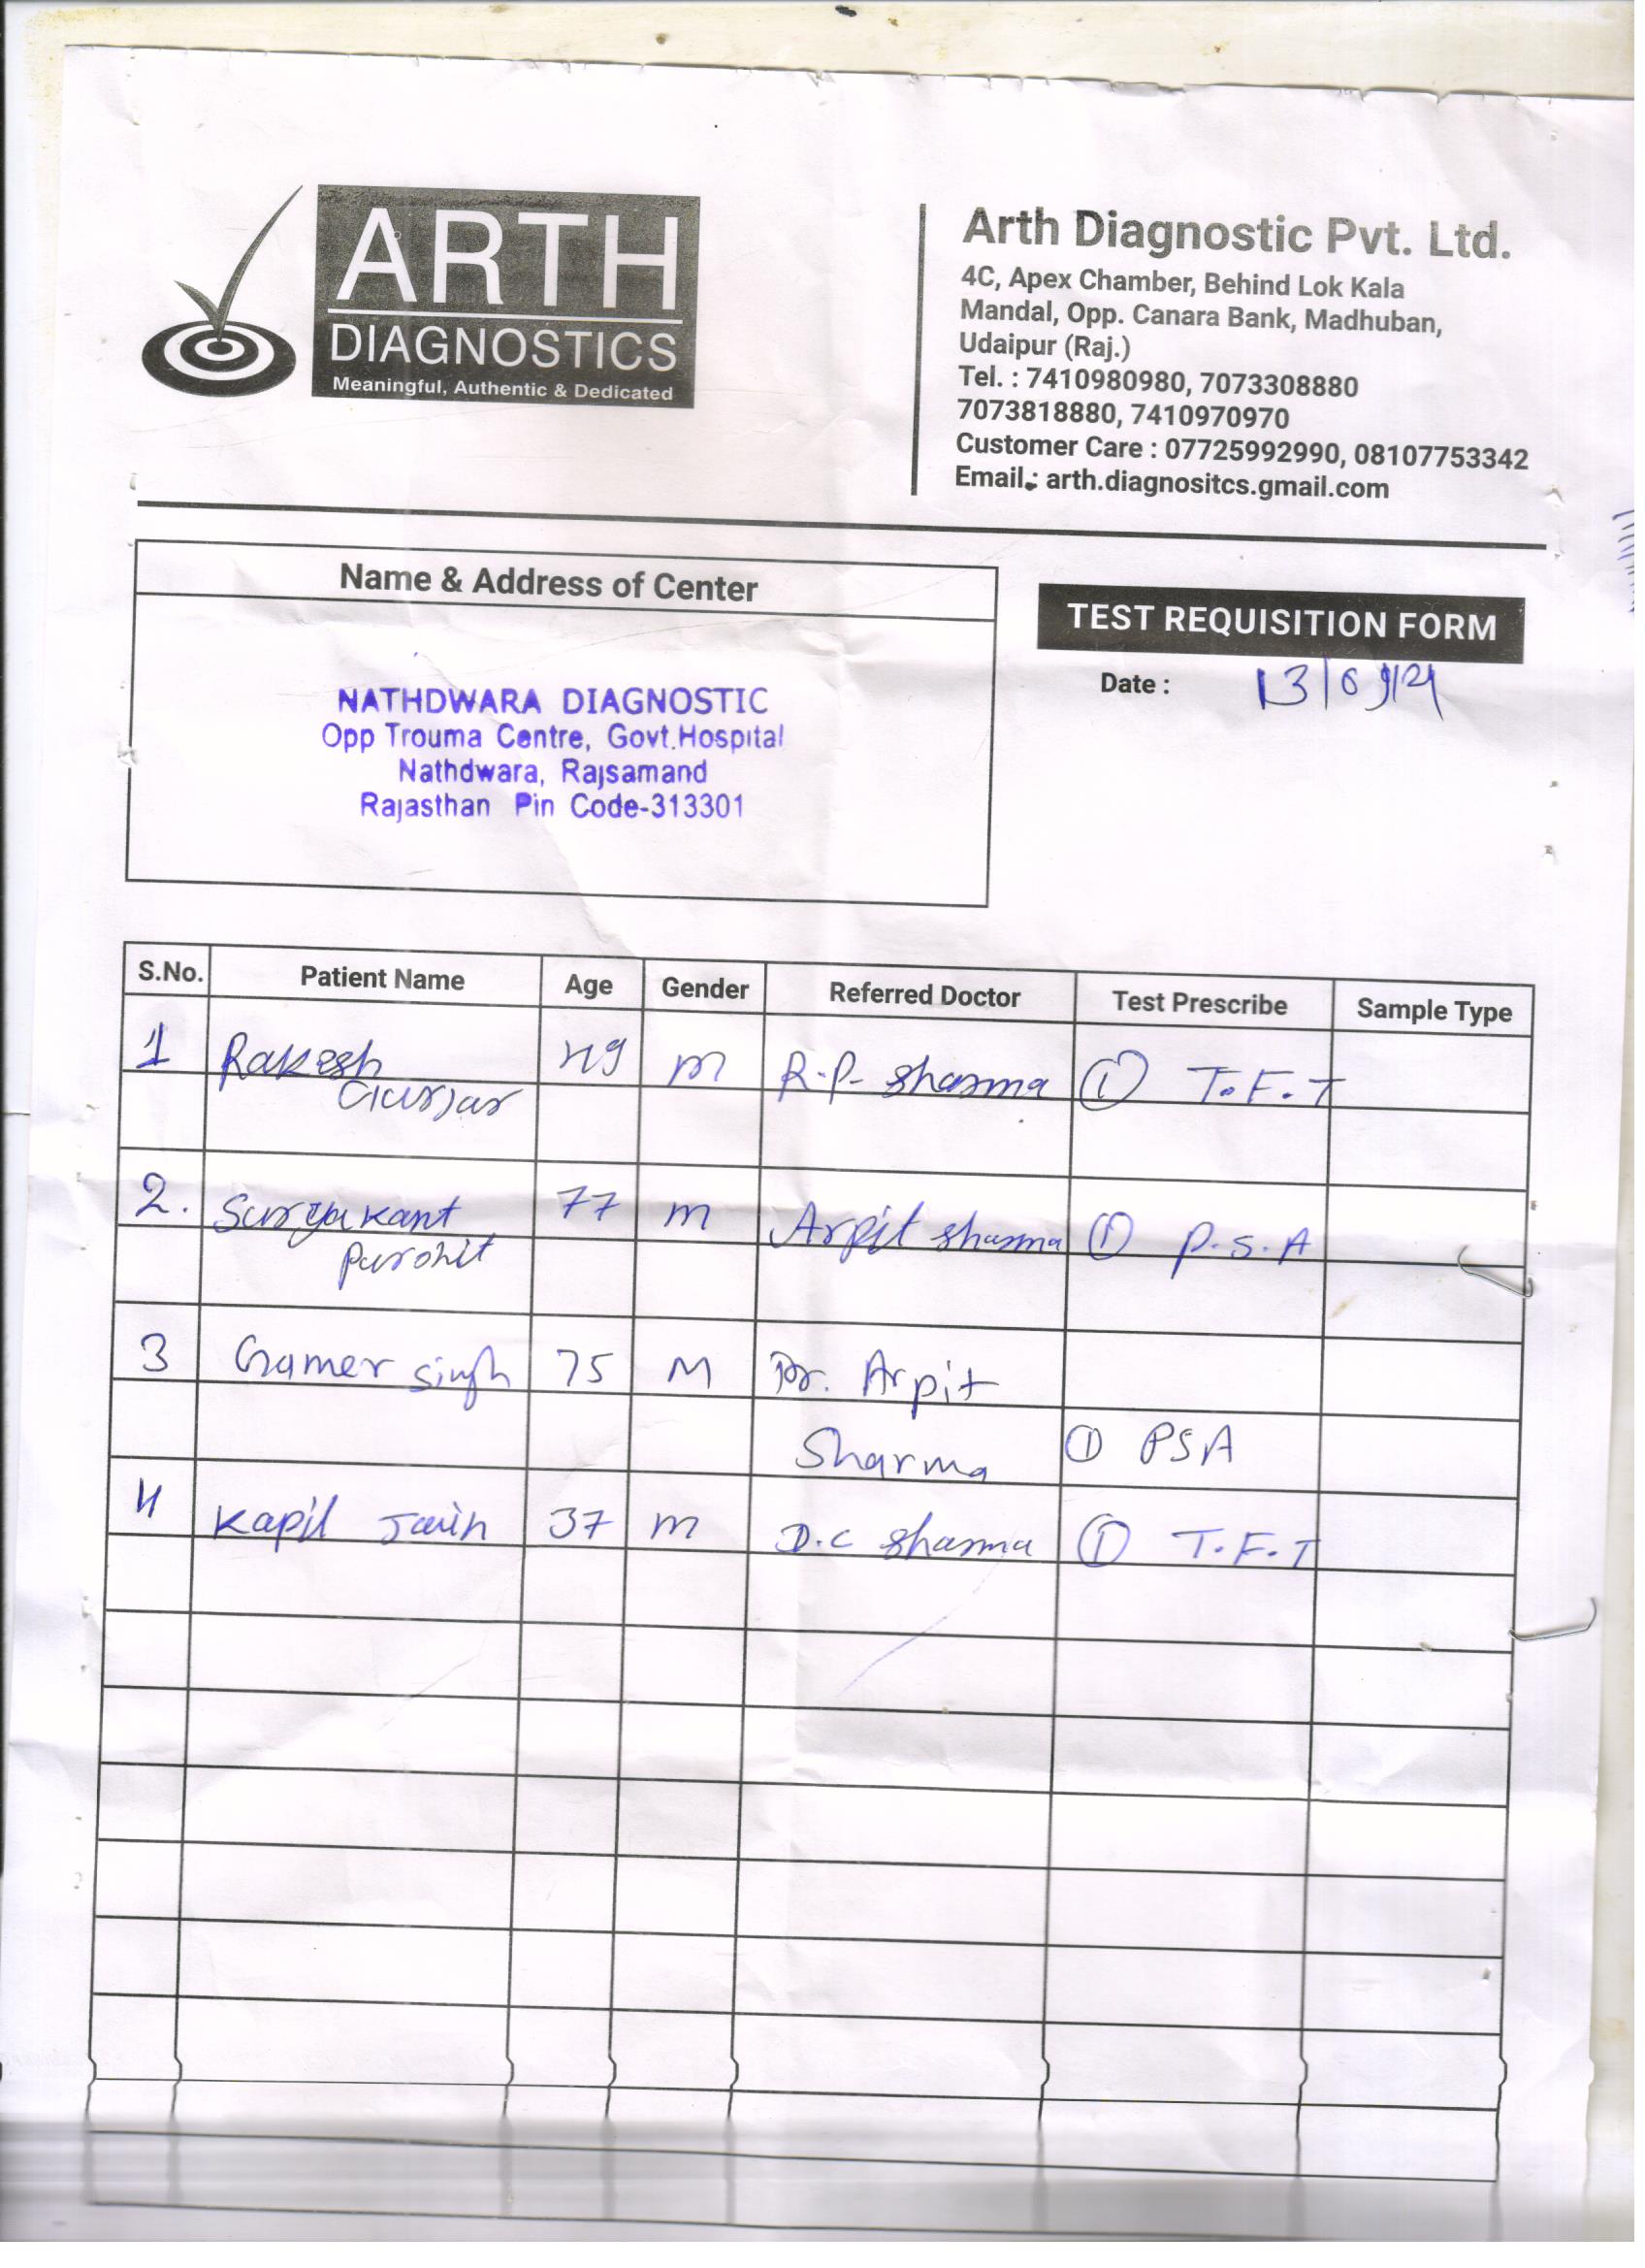 ARTH
DIAGNOSTICS
Meaningful, Authentic & Dedicated
Arth Diagnostic Pvt. Ltd.
4C, Apex Chamber, Behind Lok Kala
Mandal, Opp. Canara Bank, Madhuban,
Udaipur (Raj.)
Tel. : 7410980980, 7073308880
7073818880, 7410970970
Customer Care : 07725992990, 08107753342
Email : arth.diagnositcs.gmail.com
Name & Address of Center
NATHDWARA DIAGNOSTIC
Opp Trouma Centre, Govt.Hospital
Nathdwara, Rajsamand
Rajasthan Pin Code-313301
TEST REQUISITION FORM
Date :
S.No. Patient Name Age Gender Referred Doctor Test Prescribe Sample Type
1 Rakesh 49 m R.P. Sharma ① T.F.T
Gurjar
2. Suryakant 77 m Arpit Sharma ① P.S.A
Purohit
3 Gamer Singh 75 M Dr. Arpit
Sharma ① PSA
4 Kapil Jain 37 m D.C Sharma ① T.F.T